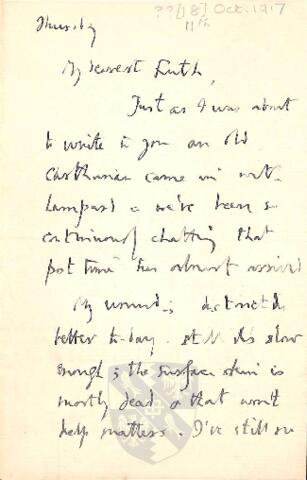 Thursday
??[18] Oct. 1917
11th
My dearest Ruth,
Just as I was about
to write to you an Old
Carthusian came in with
& we've been so
continuously chatting that
post time has almost arrived
My wound is distinctly
better to-day. still it's slow
enough; the surface skin is
mostly dead & that won't
help matters. I've still no